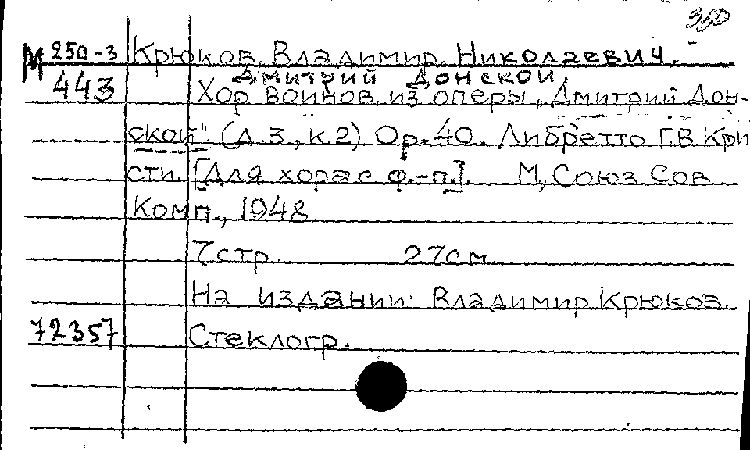 380
М 250-3 Крюков, Владимир Николаевич.
Дмитрий Донской
443 Хор воинов из оперы „Дмитрий Дон-
ской" (д.3, к.2) Ор.40. Либретто Г.В Кри
сти. [Для хора с ф.-п.]. М., Союз Сов
Комп., 1948
7 стр. 27см
На издании: Владимир Крюков.
72357 Стеклогр.